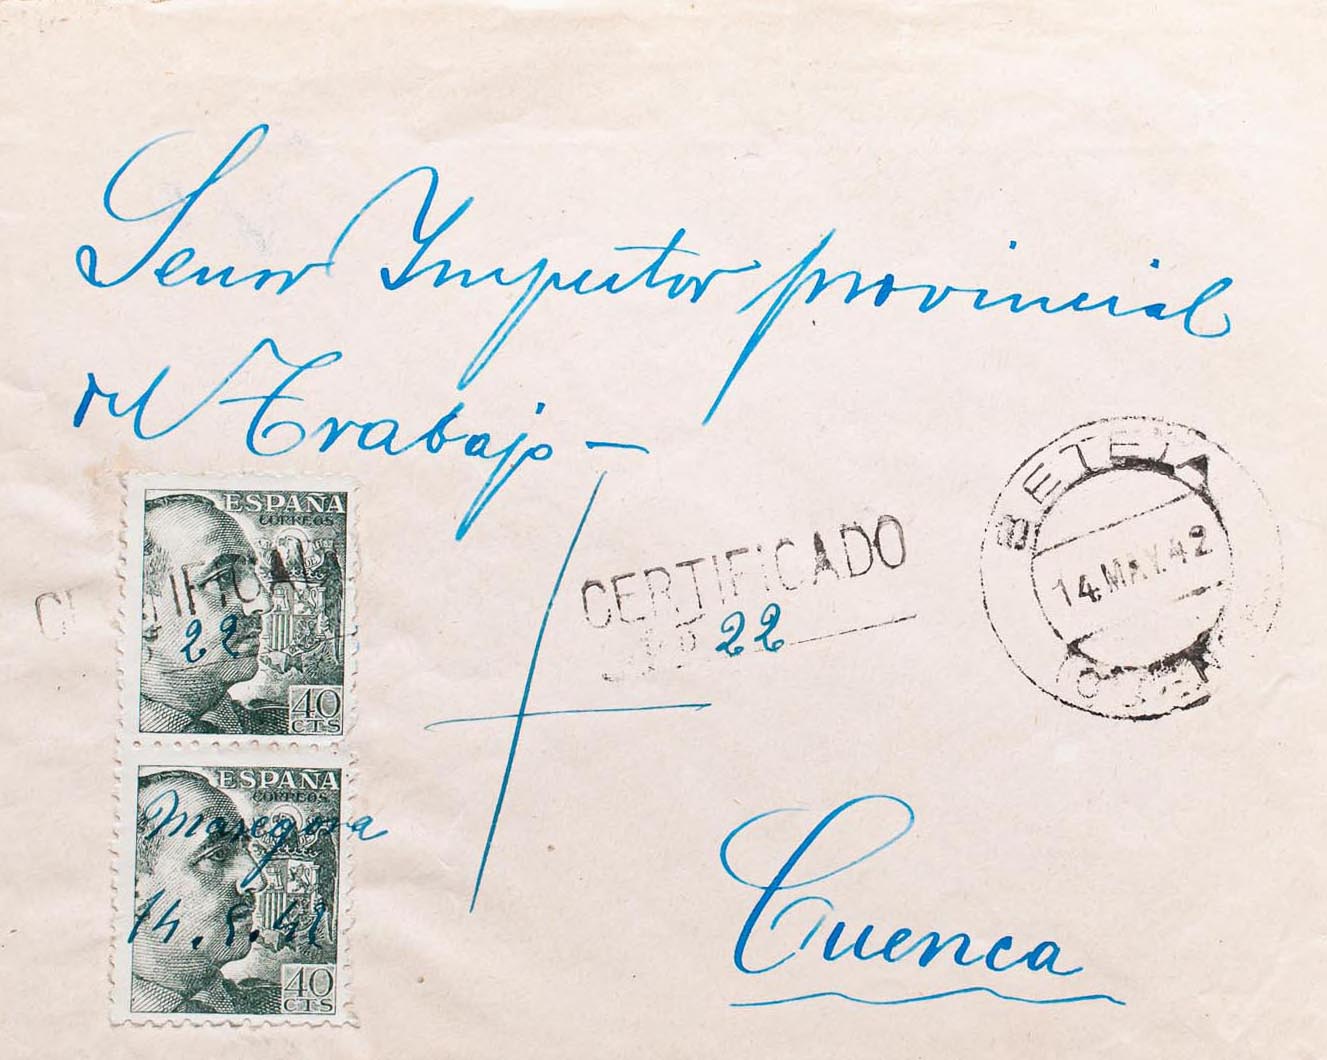 Señor Inspector provincial
del Trabajo —
ESPAÑA
CORREOS
CERTIFICADO
22
40
CTS
CERTIFICADO
Nº 22
BETETA
14.MAY.42
(CUENCA)
ESPAÑA
CORREOS
Masegosa
14.5.42
40
CTS
Cuenca